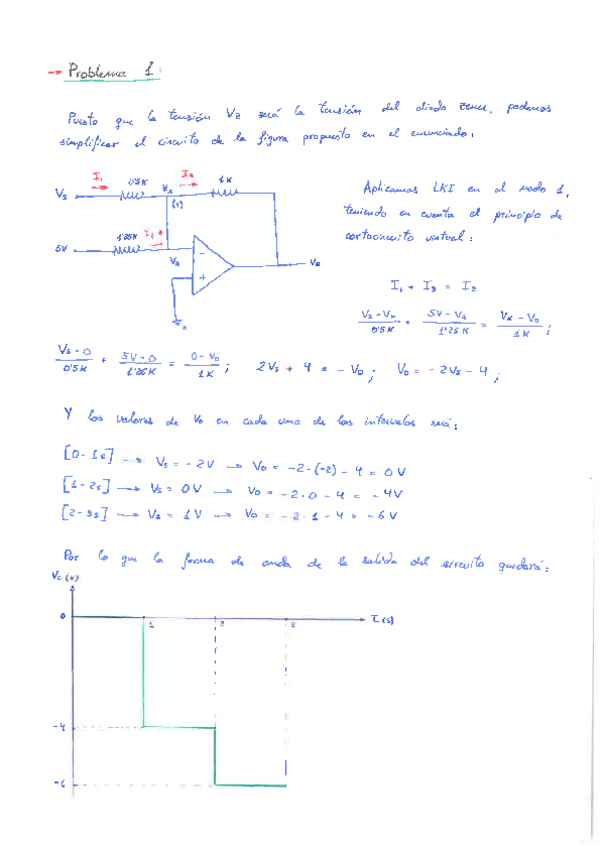 → Problema 1:
Puesto que la tensión Vz será la tensión del diodo zener, podemos
simplificar el circuito de la figura propuesto en el enunciado:
I₁ I₂
Vs 0'5K VA 1K
(1)
5V 1'25K I₃
VA - + Vo
Aplicamos LKI en el nodo 1,
teniendo en cuenta el principio de
cortocircuito virtual:
I₁ + I₃ = I₂
(Vs - VA)/0'5K + (5V - VA)/1'25K = (VA - Vo)/1K ;
(Vs - 0)/0'5K + (5V - 0)/1'25K = (0 - Vo)/1K ; 2Vs + 4 = - Vo ; Vo = - 2Vs - 4 ;
Y los valores de Vo en cada uno de los intervalos será:
[0 - 1s] → Vs = - 2V → Vo = - 2 · (-2) - 4 = 0V
[1 - 2s] → Vs = 0V → Vo = - 2 · 0 - 4 = - 4V
[2 - 3s] → Vs = 1V → Vo = - 2 · 1 - 4 = - 6V
Por lo que la forma de onda de la salida del circuito quedará:
Vo (v)
0 1 2 3 t (s)
-4
-6